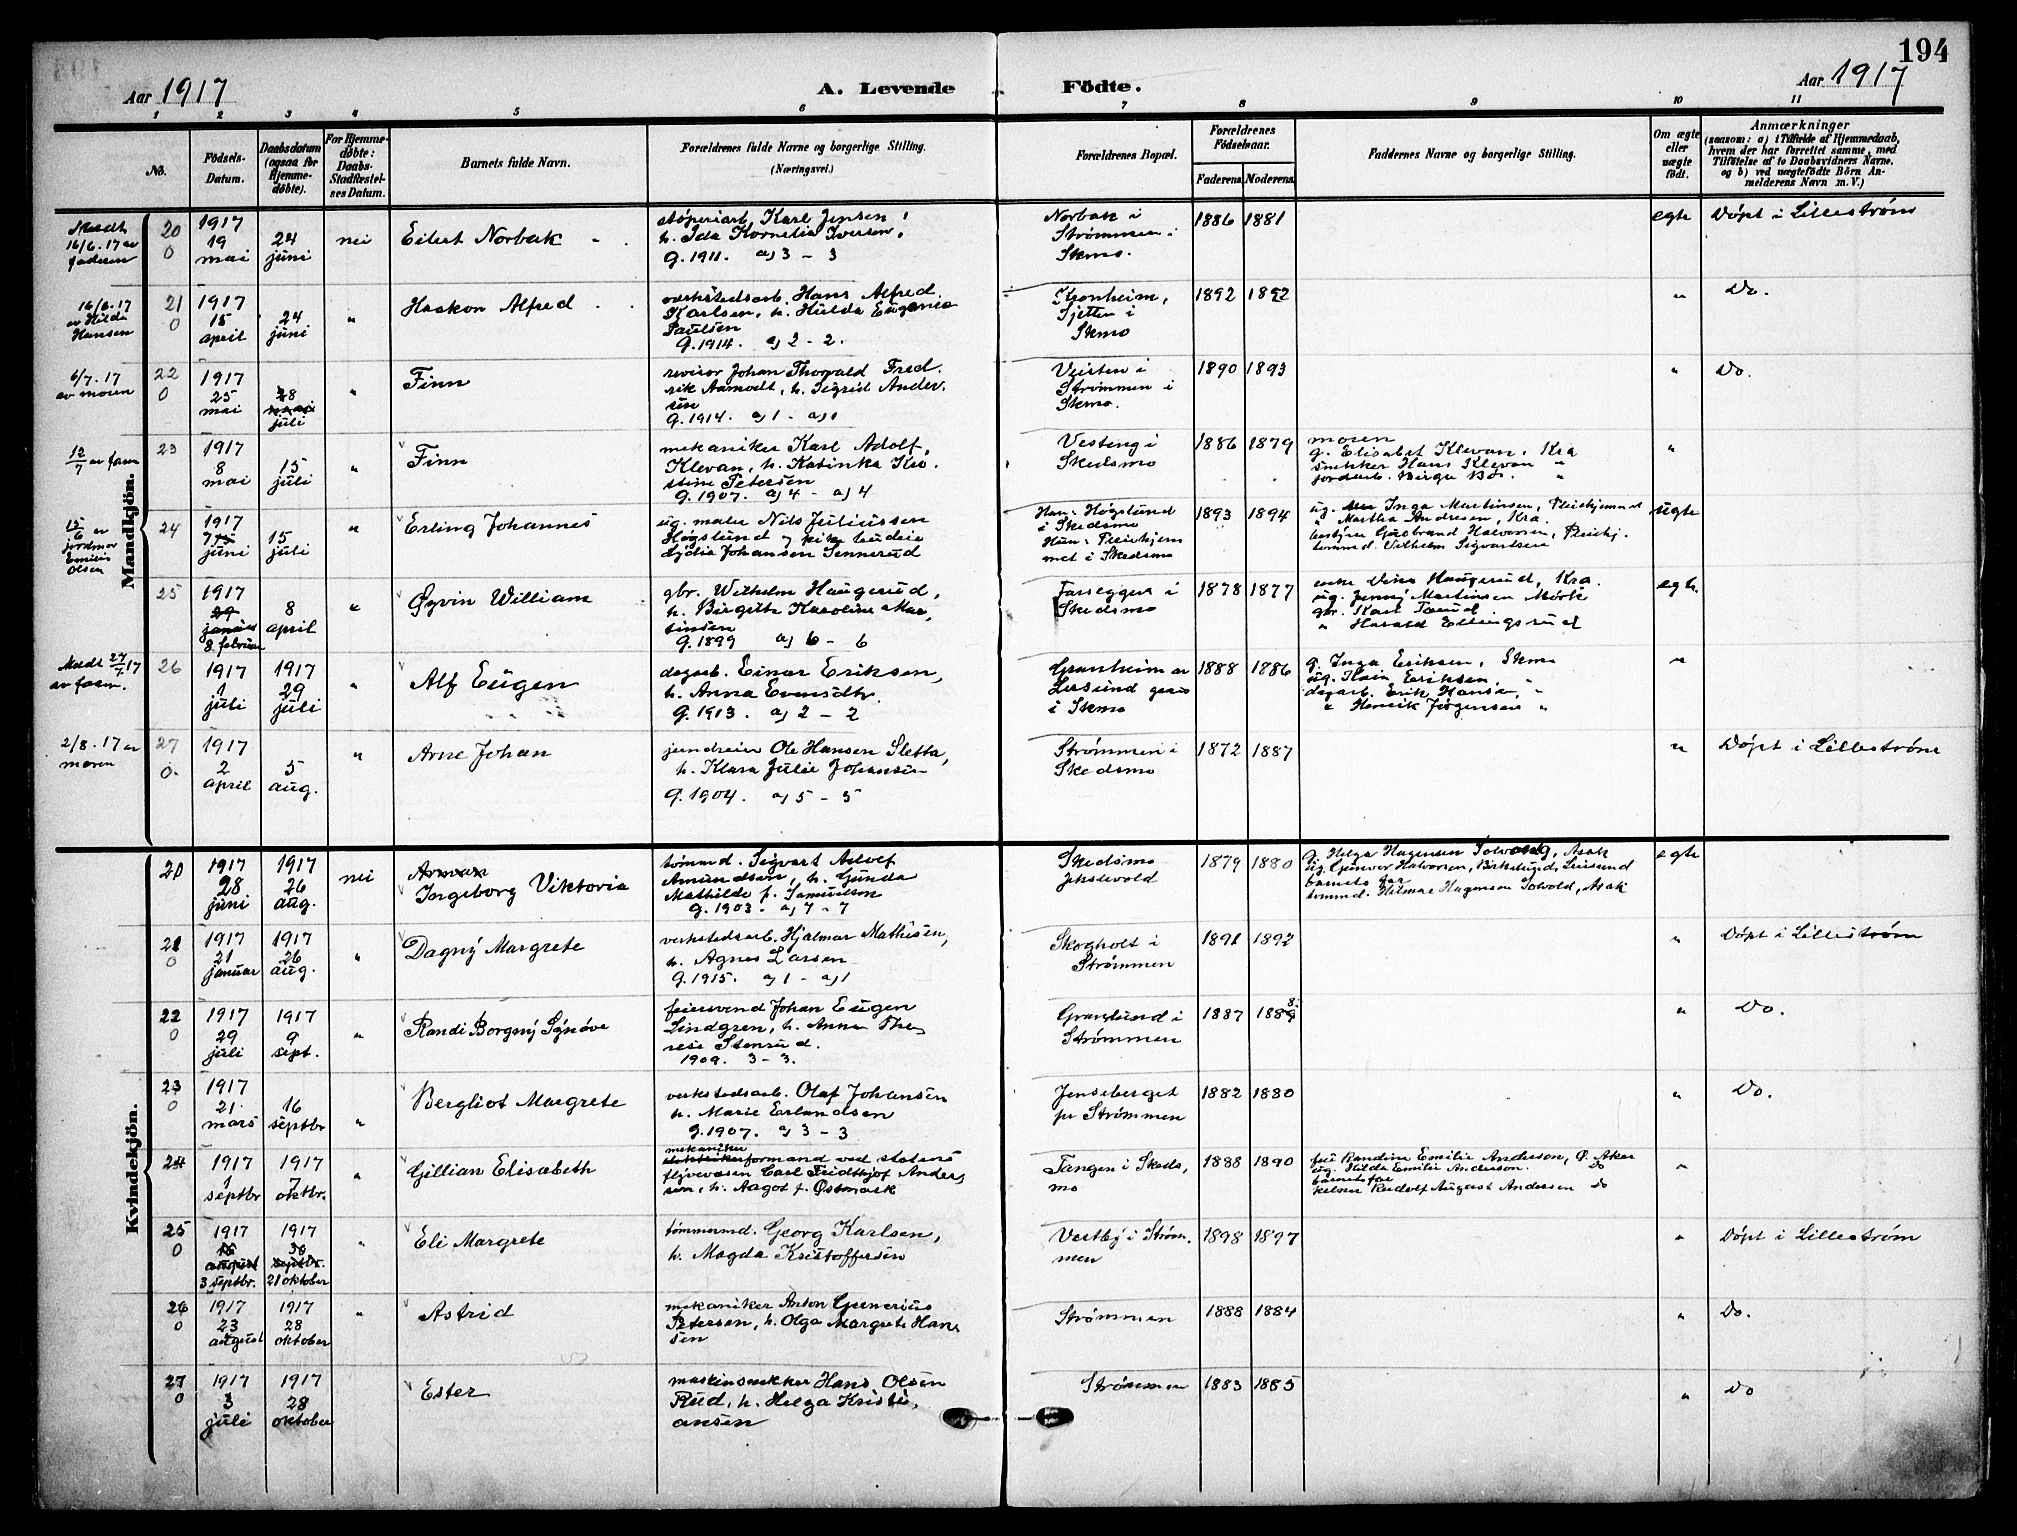 194
Aar 1917
A. Levende Födte.
Aar 1917
1 2 3 4 5 6 7 8 9 10 11
No.
Födsels-
Datum.
Daabsdatum
(ogsaa for
Hjemme-
döbte).
For Hjemme-
döbte:
Daabs-
Stadfæstel-
ses Datum.
Barnets fulde Navn.
Forældrenes fulde Navne og borgerlige Stilling.
(Næringsvei.)
Forældrenes Bopæl.
Forældrenes
Födselsaar.
Faderens. Moderens.
Faddernes Navne og borgerlige Stilling.
Om ægte
eller
uægte
födt.
Anmærkninger
(saasom: a) i Tilfælde af Hjemmedaab,
hvem der har forrettet samme, med
Tilföielse af to Daabsvidners Navne,
og b) ved uægtefödte Börn An-
melderens Navn m. V.)
Mandkjön.
Meldt
16/6.17 av
faderen
20
0
1917
19
mai
24
juni
nei
Eilert Norbak
støperiarb. Karl Jensen,
h. Ida Kornelia Iversen,
G. 1911. a) 3 - 3
Norbak i
Strømmen i
Skmo.
1886 1881
egte
Døpt i Lillestrøm
16/6.17
av Hilda
Hansen
21
0
1917
15
april
24
juni
"
Haakon Alfred
verkstedsarb. Hans Alfred
Karlsen, h. Hulda Eugenia
Paulsen
G. 1914. a) 2 - 2.
Kronheim,
Sjetten i
Skmo
1892 1892
"
Do.
6/7.17
av moren
22
0
1917
25
mai
8
mai
juli
"
Finn
revisor Johan Thorvald Fred.
rik Aamodt, h. Sigrid Ander.
sen
G. 1914. a) 1 - a) 1
Veisten i
Strømmen i
Skmo.
1890 1893
"
Do.
12/7 av faren
23
1917
8
mai
15
juli
"
Finn
mekaniker Karl Adolf,
Klevan, h. Katinka Kri.
stine Petersen
G. 1907. a) 4 - a) 4
Vesteng i
Skedsmo
1886 1879
moren
g. Elisabet Klevan, Kra
snekker Hans Klevan "
jordarb. Birger Bør. "
"
15/6 av
jordmor
Emilie
Olsen
24
1917
7
juni
15
juli
"
Erling Johannes
ug. maler Nils Juliussen
Høgslund og pike Ludvie
Lydia Johansen Tennerud
Han: Høgslund
i Skedsmo
Hun: Pleiehjem
met i Skedsmo
1893 1894
ug. Inga Martinsen, Pleiehjemmet
" Martha Andresen, Kra.
bestyrer Gudbrand Halvorsen, Pleiehj.
tømmd. Vilhelm Sigvartsen
ugte
25
1917
29
januar
8 februar
8
april
"
Øyvin William
gbr. Wilhelm Haugerud,
h. Birgitte Karoline Mar,
tinsen
G. 1899 a) 6 - 6
Farseggen i
Skedsmo
1878 1877
enke Dina Haugerud, Kra.
ug. Jenny Martinsen Mørk
gbr. Karl Tærud
" Harald Ellingsrud
egte.
Meldt 27/7.17
av faren.
26
1917
1
juli
1917
29
juli
"
Alf Eugen
dagarb. Einar Eriksen,
h. Anna Evensdtr.
G. 1913. a) 2 - 2
Granheim av
Leirsund grav
i Skmo
1888 1886
g. Inga Eriksen, Skmo
ug. Eriksen, "
dagarb. Erik Hansen, "
" Henrik Jørgensen "
"
2/8.17 av
moren
27
0.
1917
2
april
5
aug.
"
Arne Johan
jerndreier Ole Hansen Sletta,
h. Klara Julie Johansen
G. 1904. a) 5 - 5
Strømmen i
Skedsmo
1872 1887
"
Døpt i Lillestrøm
Kvindekjön.
20
1917
28
juni
1917
26
aug.
nei
Ingeborg Viktoria
tømmd. Sigvart Adolf
Amundsen, h. Gunda
Mathilde f. Samuelsen
G. 1903. a) 7 - 7
Skedsmo
Jekslevold
1879 1880
g. Helga Hagensen Solvang, Asak
ug. Gunvor Halvorsen, Birkelund, Leirsund
barnets far
tømmd. Hilmar Hagensen Solvold, Asak
egte
21
0
1917
21
januar
1917
26
aug.
"
Dagny Margrete
verkstedsarb. Hjalmar Mathisen,
h. Agnes Larsen
G. 1915. a) 1 - a) 1
Skogholt i
Strømmen
1891 1892
"
Døpt i Lillestrøm
22
0
1917
29
juli
1917
9
sept.
"
Randi Borgny Synøve
feiersvend Johan Eugen
Lindgren, h. Anna The,
rese Stensrud.
1909. 3 - 3.
Granslund i
Strømmen
1887 1888
"
Do.
23
0
1917
21.
mars
16
septbr
"
Bergliot Margrete
verkstedsarb. Olaf Johansen
h. Marie Erlandsen
G. 1907. a) 3 - 3
Jenseberget
pr Strømmen
1882 1880
"
Do.
24
1917
1
septbr
1917
7
oktbr.
"
Gillian Elisabeth
mekaniker
formand ved statens
flyvevæsen Carl Fridthjof Ander,
sen, h. Aagot f. Østmark
Tangen i Skeds,
mo
1888 1890
fru Randine Emilie Anderson, Ø. Aker
ug. Hilda Emilie Anderson. Do
barnets far
kelner Rudolf August Andersen Do
"
25
0
1917
18
august
3 septbr.
1917
30
septbr.
21 oktober
"
Eli Margrete
tømmermd. Georg Karlsen,
h. Magda Kristoffersen
Vestby i Strøm.
men
1898 1897
"
Døpt i Lillestrøm
26
0
1917
23
august
1917
28
oktober
"
Astrid
mekaniker Anton Gunerius
Petersen, h. Olga Margrete Han,
sen
Strømmen
1888 1884
"
Do.
27
0
1917
3
juli
1917
28
oktober
Ester
maskinsnekker Hans Olsen
Rud, h. Helga Kristi,
ansen
Strømmen
1883 1885
"
Do